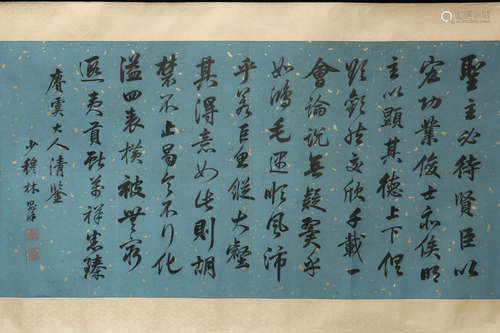 聖主必待賢臣以
宏功業俊士亦俟明
主以顯其德上下俱
然交欣千載一
會論說無疑翼乎
如鴻毛遇順風沛
乎若巨魚縱大壑
其得意如此則胡
禁不止曷令不行化
溢四表橫被無窮
遐夷貢獻萬祥必臻
賡雲大人清鑒
少穆林則徐